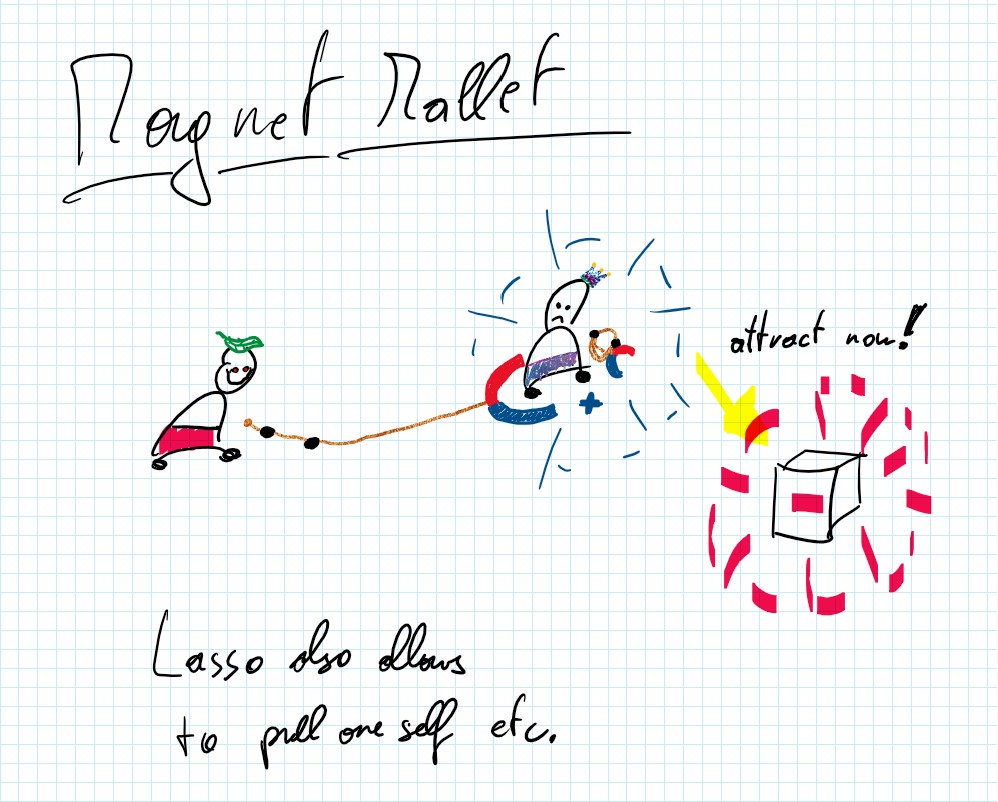 Magnet Mallet
attract now!
+
-
Lasso also allows
to pull one self etc.